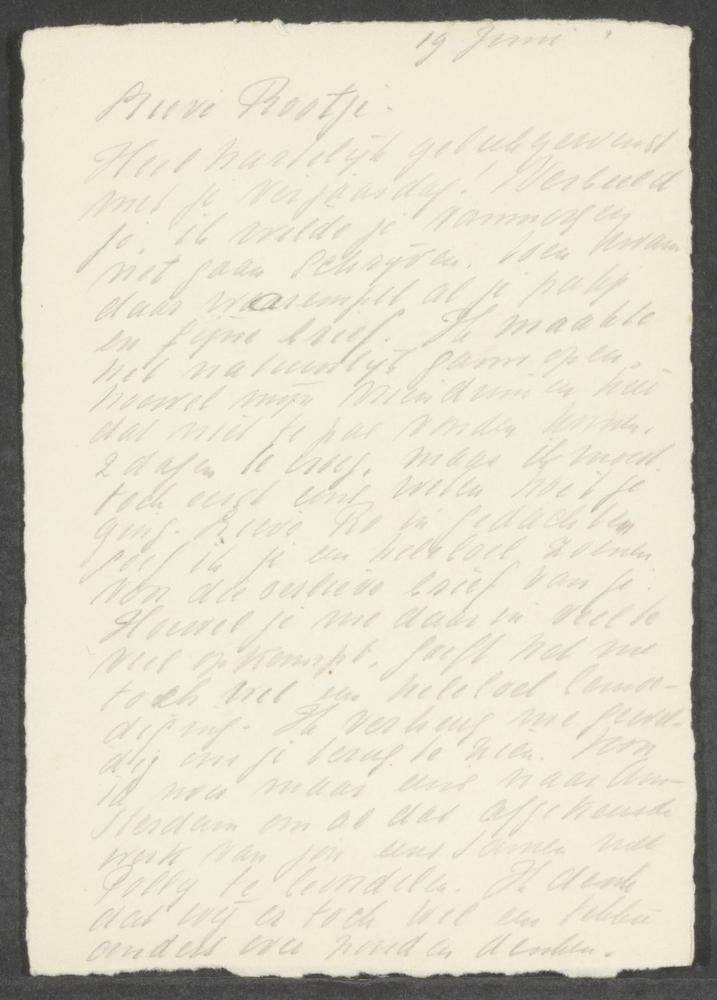 19 Juni
Lieve Rootje.
Heel hartelijk gelukgewenst
met je verjaardag! Verbeeld
je, ik wilde je vanmorgen
net gaan schrijven, toen kwam
daar waarempel al je pakje
en fijne brief. Ik maakte
het natuurlijk gauw open
hoewel mijn vriendinnen hier
dat niet te pas vonden komen,
2 dagen te vroeg, maar ik moest
toch eerst eens weten hoe 't je
ging. Lieve Ro in gedachten
geef ik je een heeleboel zoenen
voor die oerlieve brief van je.
Hoewel je me daar in veel te
veel ophemelt, geeft het me
toch wel een heeleboel bemoe-
diging. Ik verheug me gewel-
dig om je terug te zien. Kon
ik nou maar eens naar Am-
sterdam om al dat afgekeurde
werk van jou eens samen met
Polly te beoordelen. Ik denk
dat wij er toch wel een tikkie
anders over zouden denken.